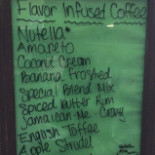 Flavor Infused Coffee
Nutella*
Amareto
Coconut Cream
Banana Froshed
Special Blend Mix
Spiced Butter Rum
Jamaican Me Crazy
English Toffee
Apple Strudel